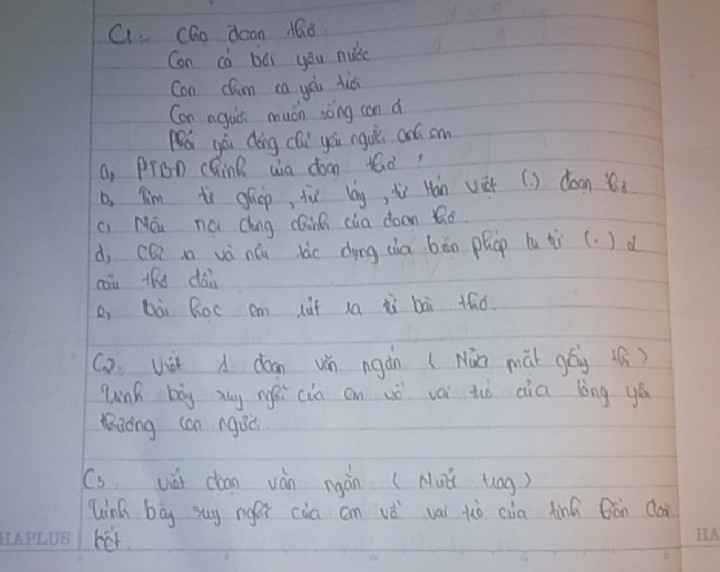 C1. Cho đoạn thơ
Con cá bơi yêu nước
Con chim ca yêu trời
Con người muốn sống con ơi
Phải yêu đồng chí yêu người anh em
a, PTBĐ chính của đoạn thơ
b, Tìm từ ghép, từ láy, từ Hán Việt (.) đoạn thơ
c, Nêu nội dung chính của đoạn thơ.
d, Chỉ ra và nêu tác dụng của biện pháp tu từ (.) 2
câu thơ đầu
e, bài học em rút ra từ bài thơ.
C2. Viết 1 đoạn văn ngắn ( Nửa mặt giấy thi )
Trình bày suy nghĩ của em về vai trò của lòng yêu
thương con người.
C3. Viết đoạn văn ngắn ( Nửa trang )
Trình bày suy nghĩ của em về vai trò của tinh thần đoàn
kết.
HAPLUS
HA